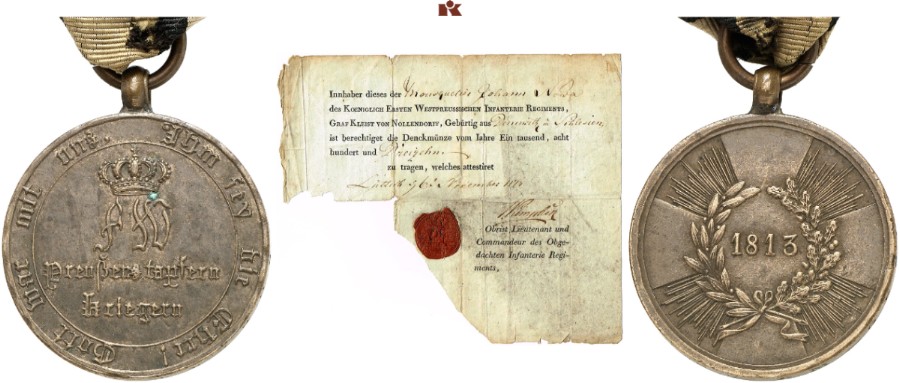 Gott war mit uns, Ihm sey die Ehre!
FW
Preußens tapfern
Kriegern
Innhaber dieses der Mousquetier Johann
des Koeniglich Ersten Westpreussischen Infanterie Regiments,
Graf Kleist von Nollendorf, Gebürtig aus in Schlesien
ist berechtiget die Denckmünze vom Jahre Ein tausend, acht
hundert und Dreyzehn
zu tragen, welches attestiret
Obrist Lieutenant und
Commandeur des Obge-
dachten Infanterie Regi-
ments,
1813